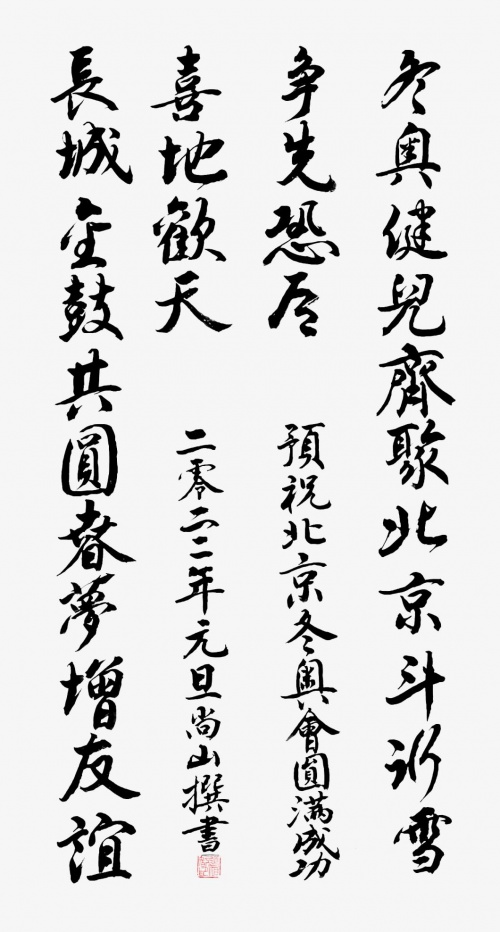 冬奥健兒齊聚北京斗冰雪
争先恐后
長城金鼓共圓春夢增友誼
喜地歡天
預祝北京冬奥會圓滿成功
二零二二年元旦尚山撰書